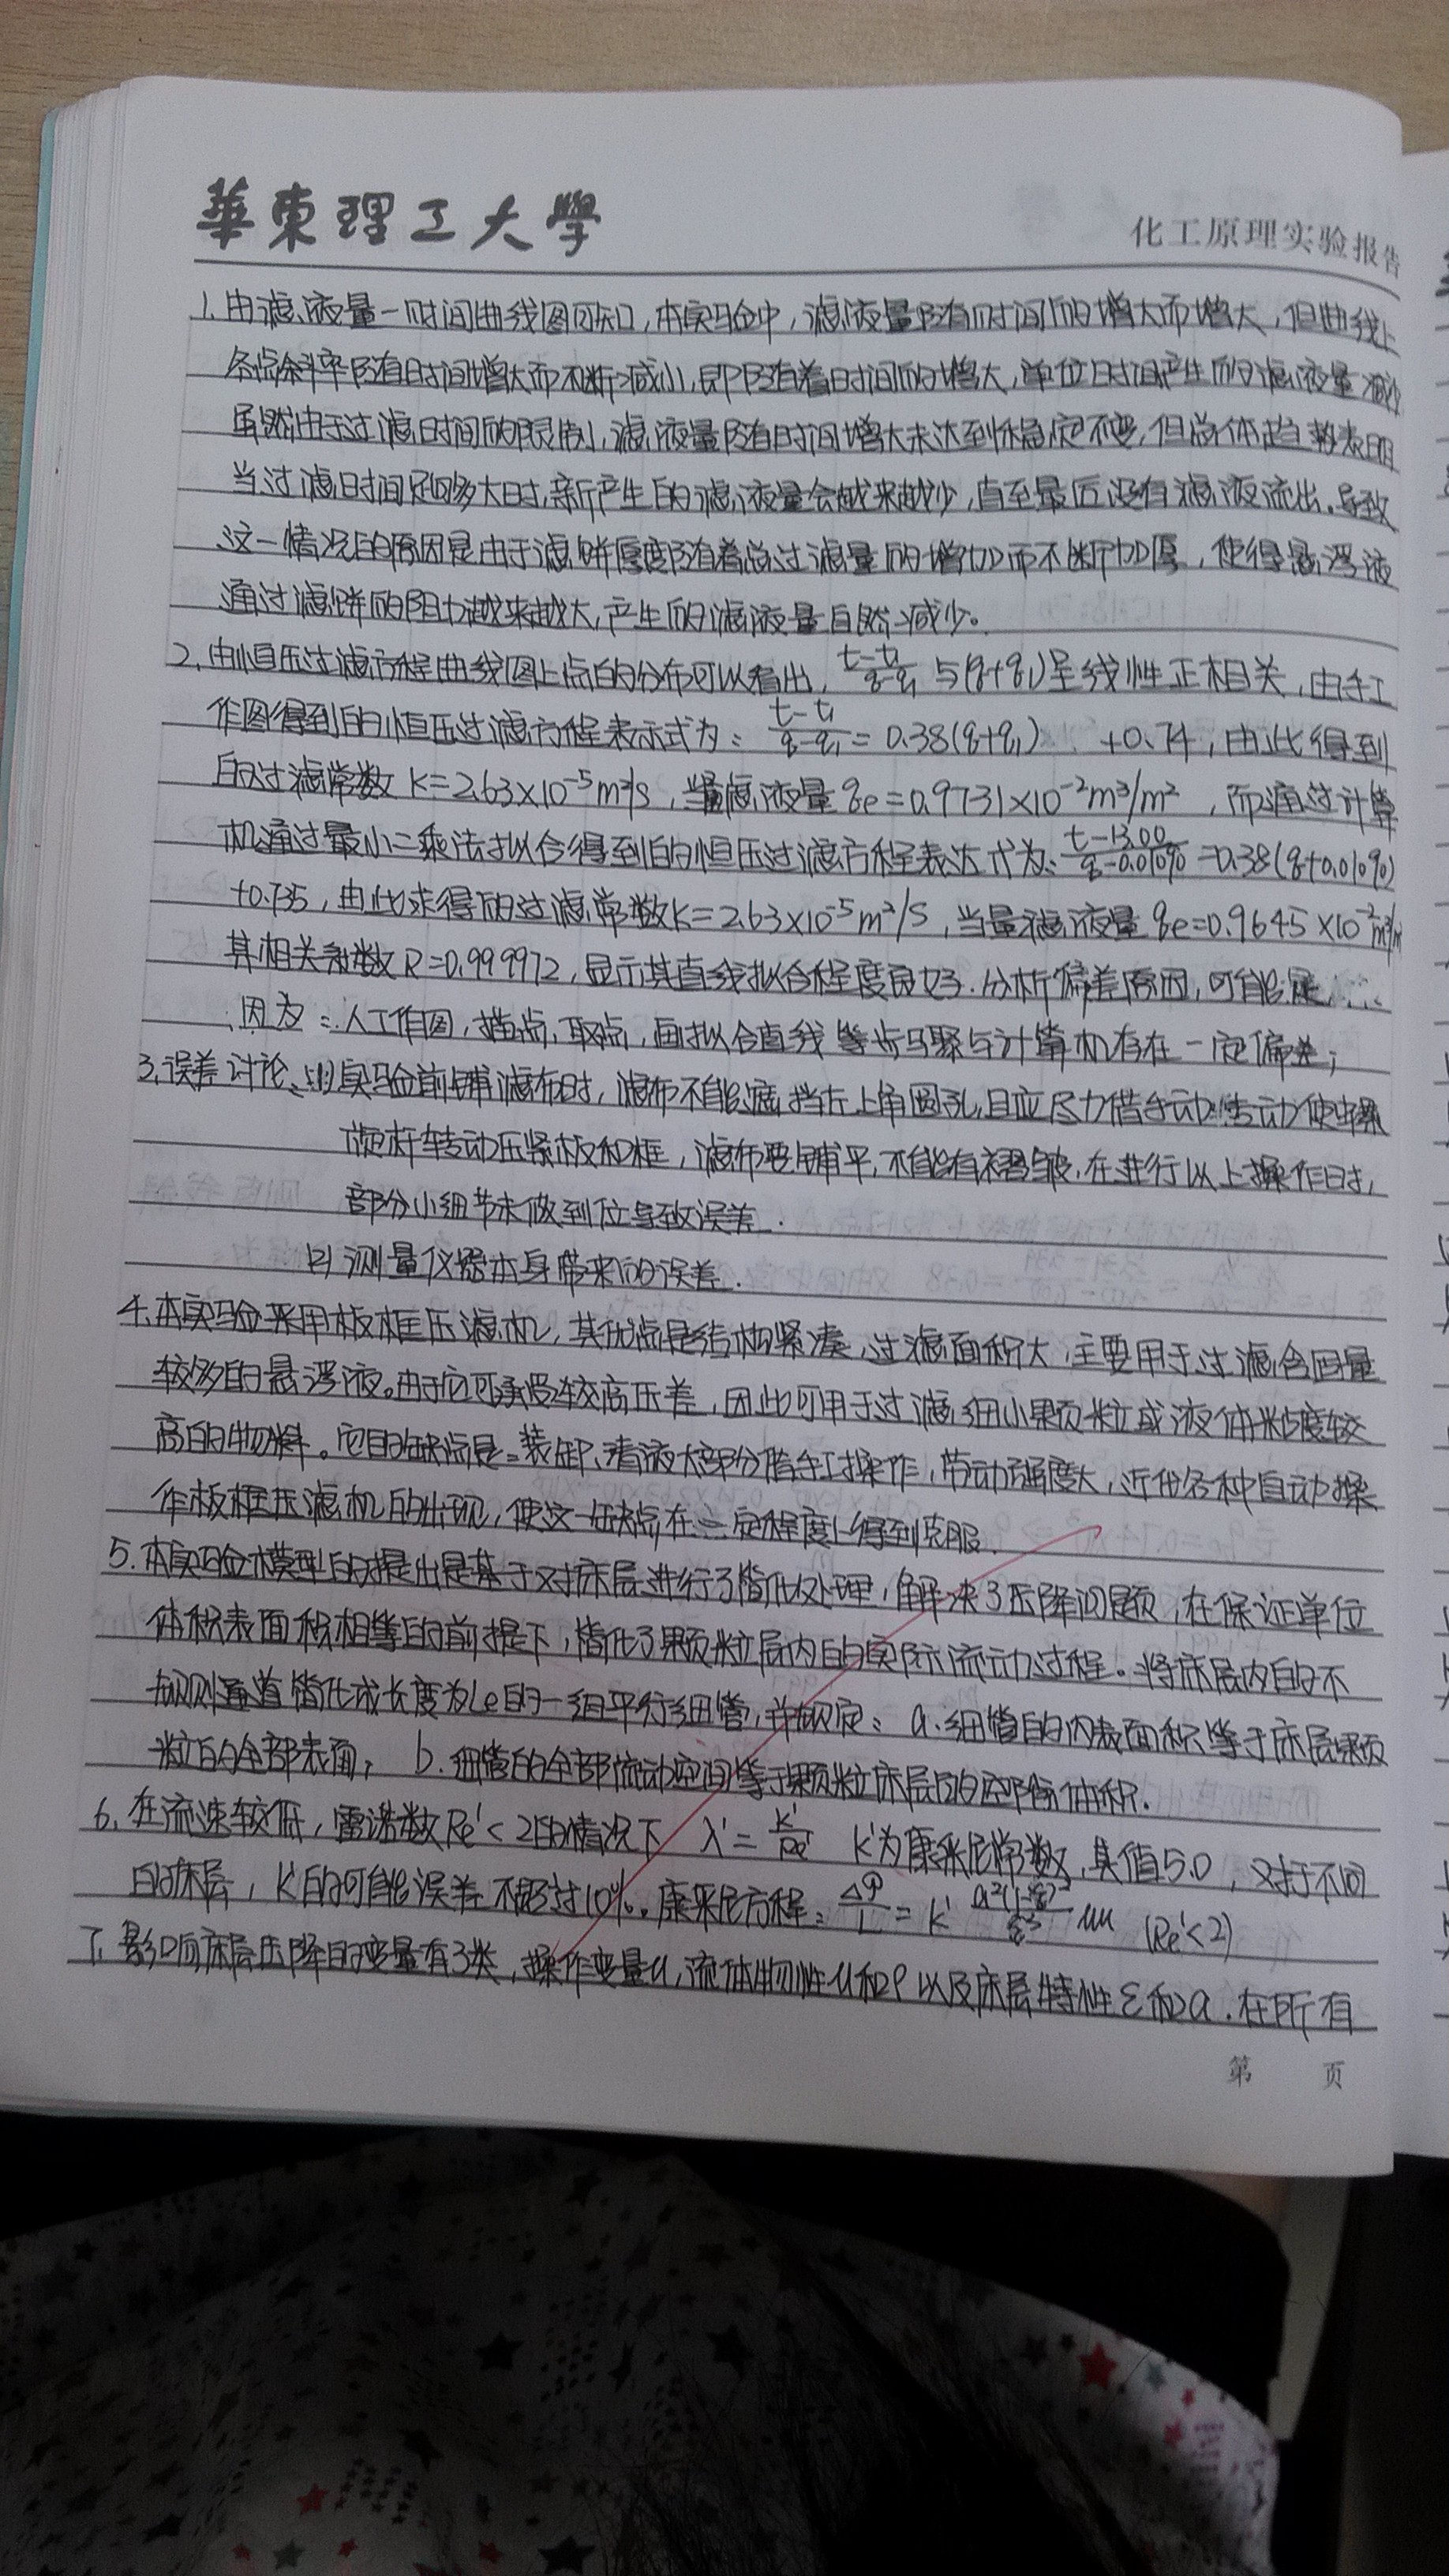 華東理工大學
化工原理实验报告
1.由滤液量一时间曲线图可知,本实验中,滤液量随时间的增大而增大,但曲线上
各点斜率随时间增大而不断减小,即随着时间的增大,单位时间产生的滤液量减少
虽然由于过滤时间的限制,滤液量随时间增大未达到稳定不变,但总体趋势表明
当过滤时间足够大时,新产生的滤液量会越来越少,直至最后没有滤液流出.导致
这一情况的原因是由于滤饼厚度随着总过滤量的增加而不断加厚,使得悬浮液
通过滤饼的阻力越来越大,产生的滤液量自然减少。
2.由恒压过滤方程曲线图上点的分布可以看出,(t-t₁)/(q-q₁)与(q+q₁)呈线性正相关,由手工
作图得到的恒压过滤方程表示式为:(t-t₁)/(q-q₁)=0.38(q+q₁) +0.74,由此得到
的过滤常数K=2.63×10⁻⁵m²/s,当量滤液量qe=0.9731×10⁻²m³/m²,而通过计算
机通过最小二乘法拟合得到的恒压过滤方程表达式为:(t-13.00)/(q-0.0190)=0.38(q+0.0190)
+0.735,由此求得的过滤常数K=2.63×10⁻⁵m²/s,当量滤液量qe=0.9645×10⁻²m³/m²
其相关系数R=0.999972,显示其直线拟合程度良好.分析偏差原因,可能是
因为:人工作图,描点,取点,画拟合直线等步骤与计算机存在一定偏差;
3.误差讨论:(1)实验前铺滤布时,滤布不能遮挡左上角圆孔,且应尽力借手动转动使螺
顶杆转动压紧板和框,滤布要铺平,不能有褶皱,在进行以上操作时,
部分小细节未做到位导致误差.
(2)测量仪器本身带来的误差.
4.本实验采用板框压滤机,其优点是结构紧凑,过滤面积大,主要用于过滤含固量
较多的悬浮液。由于它可承受较高压差,因此可用于过滤细小颗粒或液体粘度较
高的物料。它的缺点是:装卸、清液大部分借手工操作,劳动强度大,近代各种自动操
作板框压滤机的出现,使这一缺点在一定程度上得到克服.
5.本实验模型的提出是基于对床层进行了简化处理,解决了压降问题,在保证单位
体积表面积相等的前提下,简化了颗粒层内的实际流动过程。将床层内的不
规则通道简化成长度为Le的一组平行细管,并规定:a.细管的内表面积等于床层颗
粒的全部表面; b.细管的全部流动空间等于颗粒床层的空隙体积.
6.在流速较低,雷诺数Re'<2的情况下 λ'=K'/Re' K'为康采尼常数,其值5.0,对于不同
的床层,K'的可能误差不超过10%。康采尼方程:Δ𝒫/L=K' a²(1-ε)²/ε³ μu (Re'<2)
7.影响床层压降的变量有3类,操作变量u,流体物性μ和ρ以及床层特性ε和a.在所有
第 页